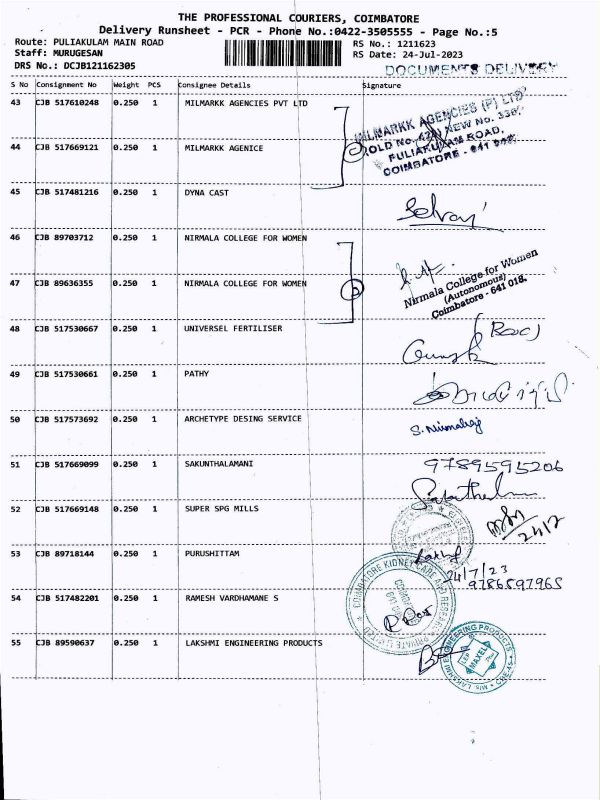 THE PROFESSIONAL COURIERS, COIMBATORE
Delivery Runsheet - PCR - Phone No.:0422-3505555 - Page No.:5
Route: PULIAKULAM MAIN ROAD RS No.: 1211623
Staff: MURUGESAN RS Date: 24-Jul-2023
DRS No.: DCJB121162305 DOCUMENTS DELIVERY
S No Consignment No Weight PCS Consignee Details Signature
43 CJB 517610248 0.250 1 MILMARKK AGENCIES PVT LTD
MILMARKK AGENCIES (P) LTD
OLD No. NEW No. 330,
44 CJB 517669121 0.250 1 MILMARKK AGENICE
PULIAKULAM ROAD,
COIMBATORE - 641
45 CJB 517481216 0.250 1 DYNA CAST
Selvaj
46 CJB 89703712 0.250 1 NIRMALA COLLEGE FOR WOMEN
Nirmala College for Women
(Autonomous)
Coimbatore - 641 018.
47 CJB 89636355 0.250 1 NIRMALA COLLEGE FOR WOMEN
2
48 CJB 517530667 0.250 1 UNIVERSEL FERTILISER
49 CJB 517530661 0.250 1 PATHY
50 CJB 517573692 0.250 1 ARCHETYPE DESING SERVICE
S. Nirmalraj
51 CJB 517669099 0.250 1 SAKUNTHALAMANI
9789595206
52 CJB 517669148 0.250 1 SUPER SPG MILLS
24/7
53 CJB 89718144 0.250 1 PURUSHITTAM
24/7/23
9786597965
54 CJB 517482201 0.250 1 RAMESH VARDHAMANE S
COIMBATORE KIDNEY CARE AND RESEARCH PRIVATE LIMITED
55 CJB 89590637 0.250 1 LAKSHMI ENGINEERING PRODUCTS
M/s. LAKSHMI ENGINEERING PRODUCTS CBE-45
LEP MAXEL